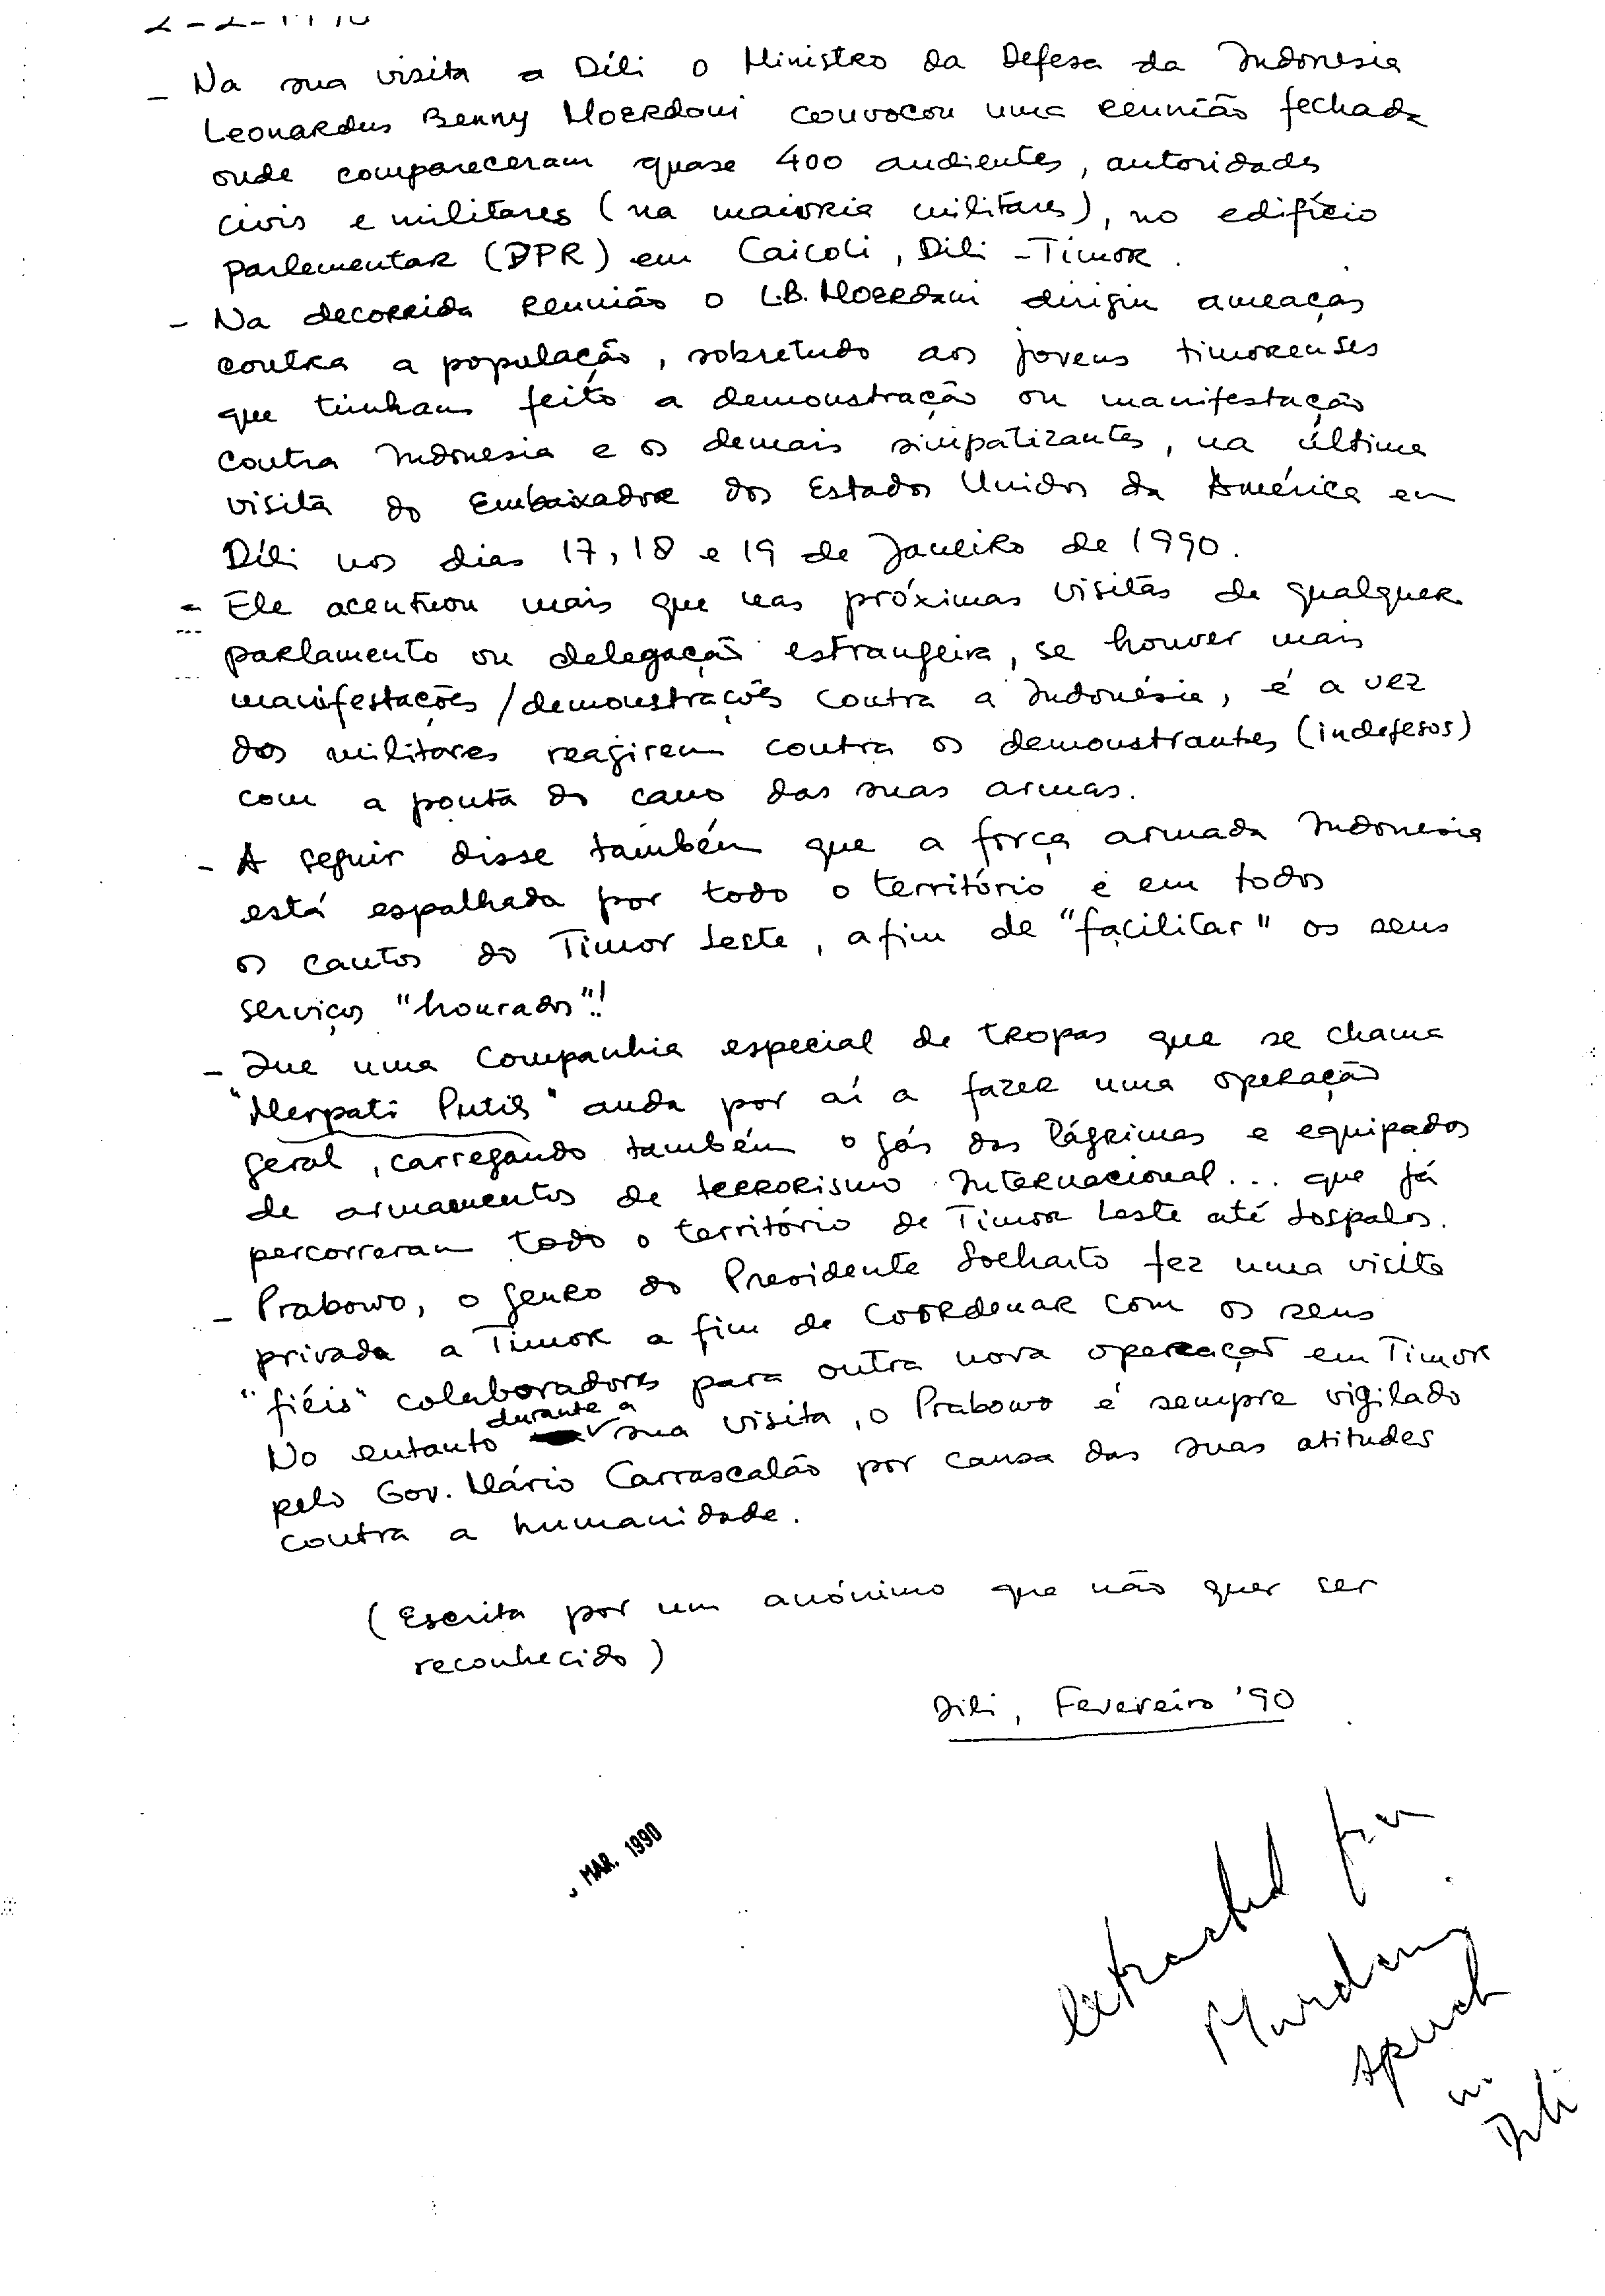 2-2-1990
- Na sua visita a Díli o Ministro da Defesa da Indonesia
Leonardus Benny Moerdani convocou uma reunião fechada
onde compareceram quase 400 audientes, autoridades
civis e militares (na maioria militares), no edifício
parlementar (DPR) em Caicoli, Dili - Timor.
- Na decorrida reunião o L.B. Moerdani dirigiu ameaças
contra a população, sobretudo aos jovens timorenses
que tinham feito a demonstração ou manifestação
contra Indonesia e os demais simpatizantes, na última
visita do Embaixador dos Estados Unidos da América em
Díli nos dias 17, 18 e 19 de Janeiro de 1990.
- Ele acentuou mais que nas próximas visitas de qualquer
parlamento ou delegação estrangeira, se houver mais
manifestações/demonstrações contra a Indonésia, é a vez
dos militares reagirem contra os demonstrantes (indefesos)
com a ponta do cano das suas armas.
- A seguir disse também que a força armada Indonesia
está espalhada por todo o território e em todos
os cantos do Timor Leste, afim de "facilitar" os seus
serviços "honrados"!
- Que uma Companhia especial de tropas que se chama
"Merpati Putih" anda por aí a fazer uma operação
geral, carregando também o gás das lágrimas e equipados
de armamentos de terrorismo Internacional... que já
percorreram todo o território de Timor Leste até Lospalos.
- Prabowo, o genro do Presidente Soeharto fez uma visita
privada a Timor a fim de coordenar com os seus
"fiéis" colaboradores para outra nova operação em Timor
No entanto durante a sua visita, o Prabowo é sempre vigilado
pelo Gov. Mário Carrascalão por causa das suas atitudes
contra a humanidade.
(Escrita por um anónimo que não quer ser
reconhecido)
Dili, Fevereiro '90
MAR. 1990
Extracted from
Murdani
speech
in
Dili